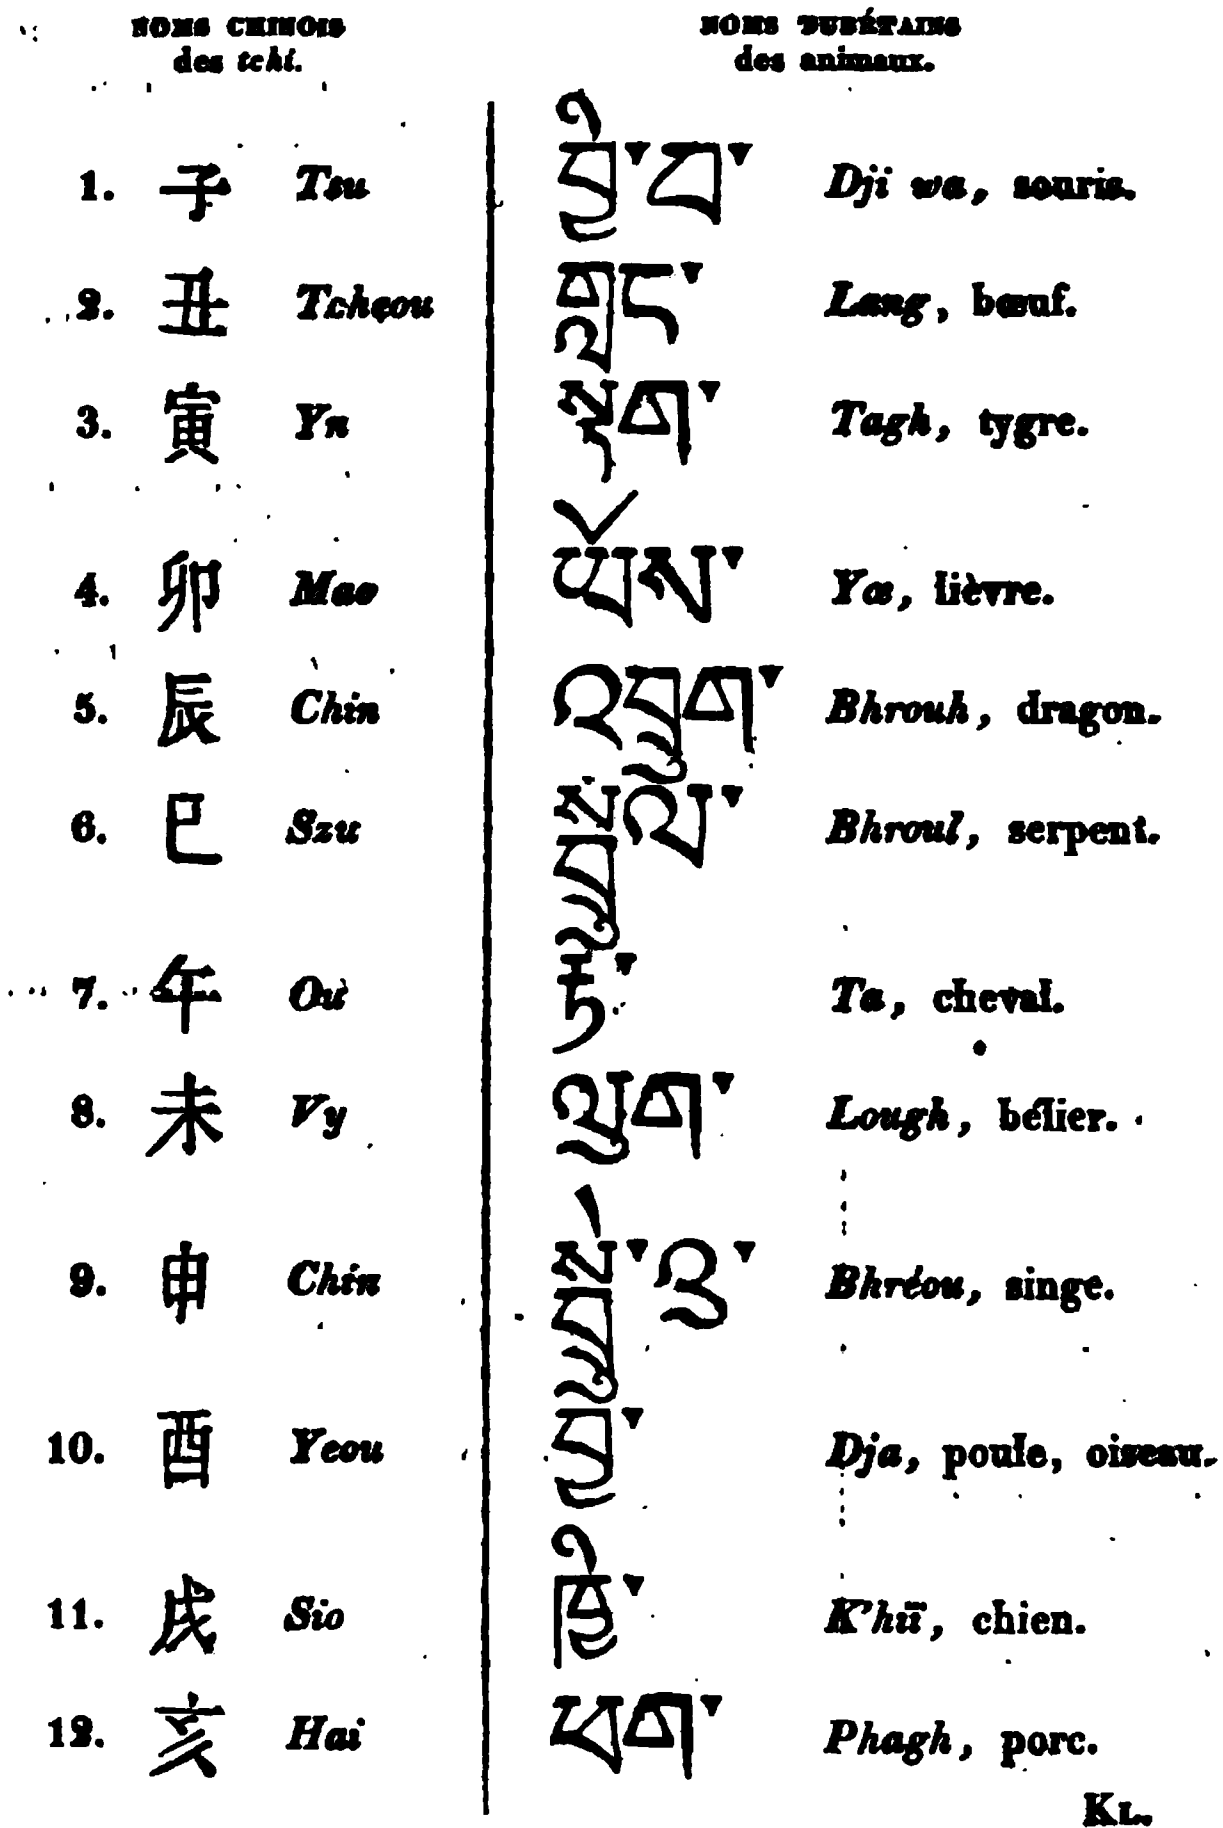 NOMS CHINOIS NOMS TUBÉTAINS
des tchi. des animaux.
1. 子 Tsu བྱི་བ་ Dji wa, souris.
2. 丑 Tcheou གླང་ Lang, bœuf.
3. 寅 Yn སྟག་ Tagh, tygre.
4. 卯 Mao ཡོས་ Yœ, lièvre.
5. 辰 Chin འབྲུག་ Bhrouh, dragon.
6. 巳 Szu སྦྲུལ་ Bhroul, serpent.
7. 午 Ou རྟ་ Ta, cheval.
8. 未 Vy ལུག་ Lough, bélier.
9. 申 Chin སྦྲེ་འུ་ Bhréou, singe.
10. 酉 Yeou བྱ་ Dja, poule, oiseau.
11. 戌 Sio ཁྱི་ K'hiï, chien.
12. 亥 Hai ཕག་ Phagh, porc.
KL.